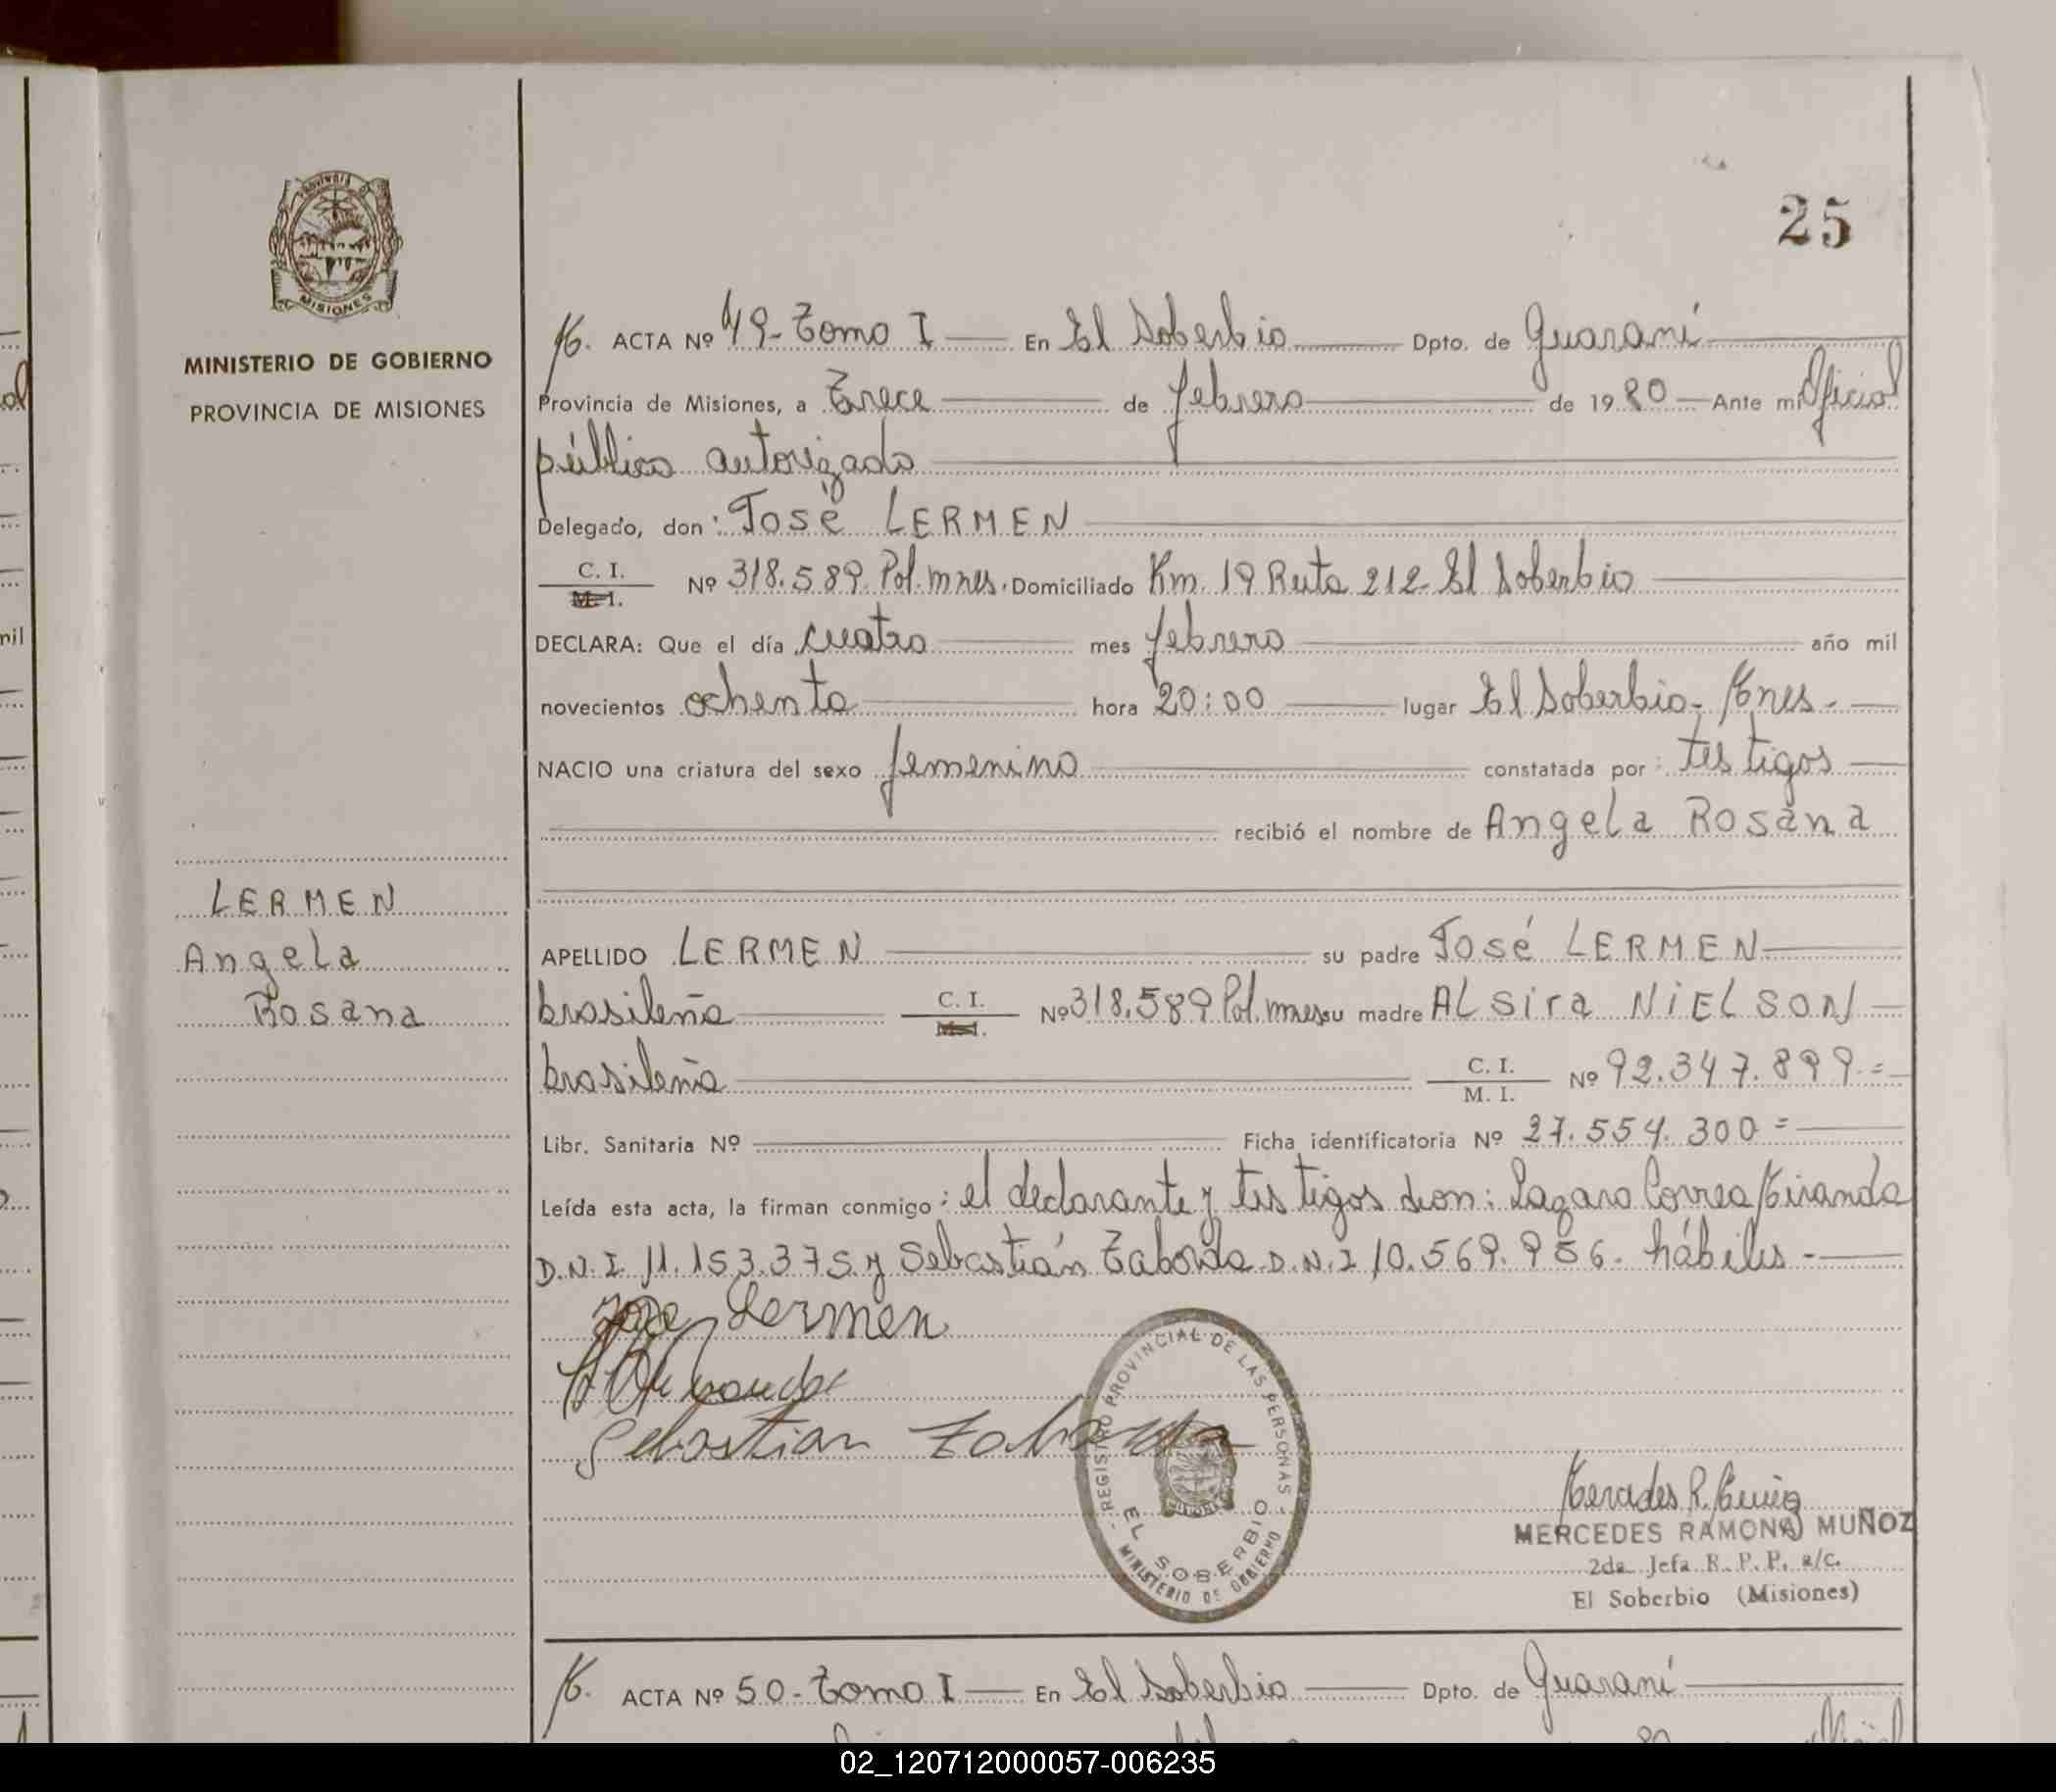 25
MINISTERIO DE GOBIERNO
PROVINCIA DE MISIONES
MISIONES
LERMEN
Angela
Rosana
ACTA Nº 49-Tomo I — En El Soberbio Dpto. de Guaraní
Provincia de Misiones, a Trece de febrero de 1980 — Ante mi Oficial
público autorizado
Delegado, don: José LERMEN
C. I. M. I. Nº 318.589 Pol. mnes. Domiciliado Km. 19 Ruta 212 El Soberbio
DECLARA: Que el día cuatro mes febrero año mil
novecientos ochenta hora 20:00 lugar El Soberbio- Mnes.-
NACIO una criatura del sexo femenino constatada por: testigos
recibió el nombre de Angela Rosana
APELLIDO LERMEN su padre José LERMEN
brasileña C. I. M. I. Nº 318.589 Pol. mnes su madre ALSira NiELSON
brasileña C. I. M. I. Nº 92.347.899=
Libr. Sanitaria Nº Ficha identificatoria Nº 27.554.300=
Leída esta acta, la firman conmigo: el declarante y testigos don: Lazaro Correa Miranda
D.N.I. 11.153.375 y Sebastián Taborda D.N.I 10.569.956. hábiles.-
Jose Lermen
Sebastian Taborda
REGISTRO PROVINCIAL DE LAS PERSONAS
EL SOBERBIO
MINISTERIO DE GOBIERNO
Mercedes R. Muñoz
MERCEDES RAMONA MUÑOZ
2da Jefa R. P. P. a/c.
El Soberbio (Misiones)
ACTA Nº 50-Tomo I — En El Soberbio Dpto. de Guaraní
02_120712000057-006235